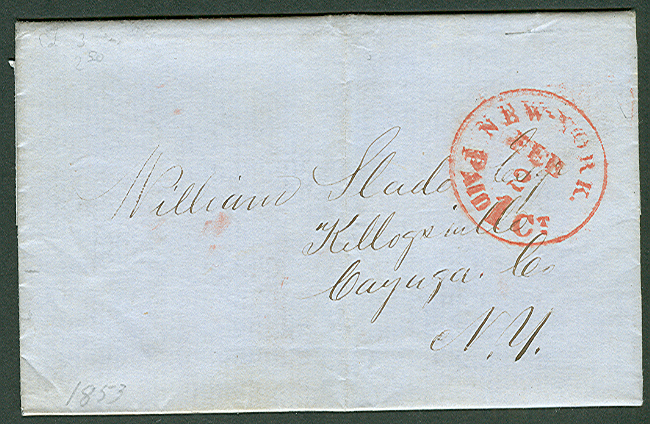 250
NEW-YORK
FEB
2
PAID 1 CT
William Slade Esq
Kellogsville
Cayuga. Co
N.Y.
1853